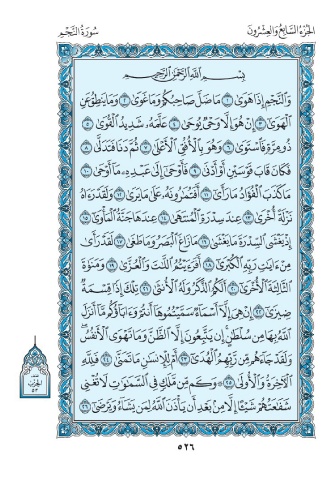 الجزء السابع والعشرون
سورة النجم
بِسْمِ اللَّهِ الرَّحْمَٰنِ الرَّحِيمِ
وَالنَّجْمِ إِذَا هَوَىٰ ١ مَا ضَلَّ صَاحِبُكُمْ وَمَا غَوَىٰ ٢ وَمَا يَنطِقُ عَنِ
الْهَوَىٰ ٣ إِنْ هُوَ إِلَّا وَحْيٌ يُوحَىٰ ٤ عَلَّمَهُ شَدِيدُ الْقُوَىٰ ٥
ذُو مِرَّةٍ فَاسْتَوَىٰ ٦ وَهُوَ بِالْأُفُقِ الْأَعْلَىٰ ٧ ثُمَّ دَنَا فَتَدَلَّىٰ ٨
فَكَانَ قَابَ قَوْسَيْنِ أَوْ أَدْنَىٰ ٩ فَأَوْحَىٰ إِلَىٰ عَبْدِهِ مَا أَوْحَىٰ ١٠
مَا كَذَبَ الْفُؤَادُ مَا رَأَىٰ ١١ أَفَتُمَارُونَهُ عَلَىٰ مَا يَرَىٰ ١٢ وَلَقَدْ رَآهُ
نَزْلَةً أُخْرَىٰ ١٣ عِندَ سِدْرَةِ الْمُنتَهَىٰ ١٤ عِندَهَا جَنَّةُ الْمَأْوَىٰ ١٥
إِذْ يَغْشَى السِّدْرَةَ مَا يَغْشَىٰ ١٦ مَا زَاغَ الْبَصَرُ وَمَا طَغَىٰ ١٧ لَقَدْ رَأَىٰ
مِنْ آيَاتِ رَبِّهِ الْكُبْرَىٰ ١٨ أَفَرَأَيْتُمُ اللَّاتَ وَالْعُزَّىٰ ١٩ وَمَنَاةَ
الثَّالِثَةَ الْأُخْرَىٰ ٢٠ أَلَكُمُ الذَّكَرُ وَلَهُ الْأُنثَىٰ ٢١ تِلْكَ إِذًا قِسْمَةٌ
ضِيزَىٰ ٢٢ إِنْ هِيَ إِلَّا أَسْمَاءٌ سَمَّيْتُمُوهَا أَنتُمْ وَآبَاؤُكُم مَّا أَنزَلَ
اللَّهُ بِهَا مِن سُلْطَانٍ إِن يَتَّبِعُونَ إِلَّا الظَّنَّ وَمَا تَهْوَى الْأَنفُسُ
وَلَقَدْ جَاءَهُم مِّن رَّبِّهِمُ الْهُدَىٰ ٢٣ أَمْ لِلْإِنسَانِ مَا تَمَنَّىٰ ٢٤ فَلِلَّهِ
الْآخِرَةُ وَالْأُولَىٰ ٢٥ وَكَم مِّن مَّلَكٍ فِي السَّمَاوَاتِ لَا تُغْنِي
شَفَاعَتُهُمْ شَيْئًا إِلَّا مِن بَعْدِ أَن يَأْذَنَ اللَّهُ لِمَن يَشَاءُ وَيَرْضَىٰ ٢٦
الحزب
٥٣
٥٢٦